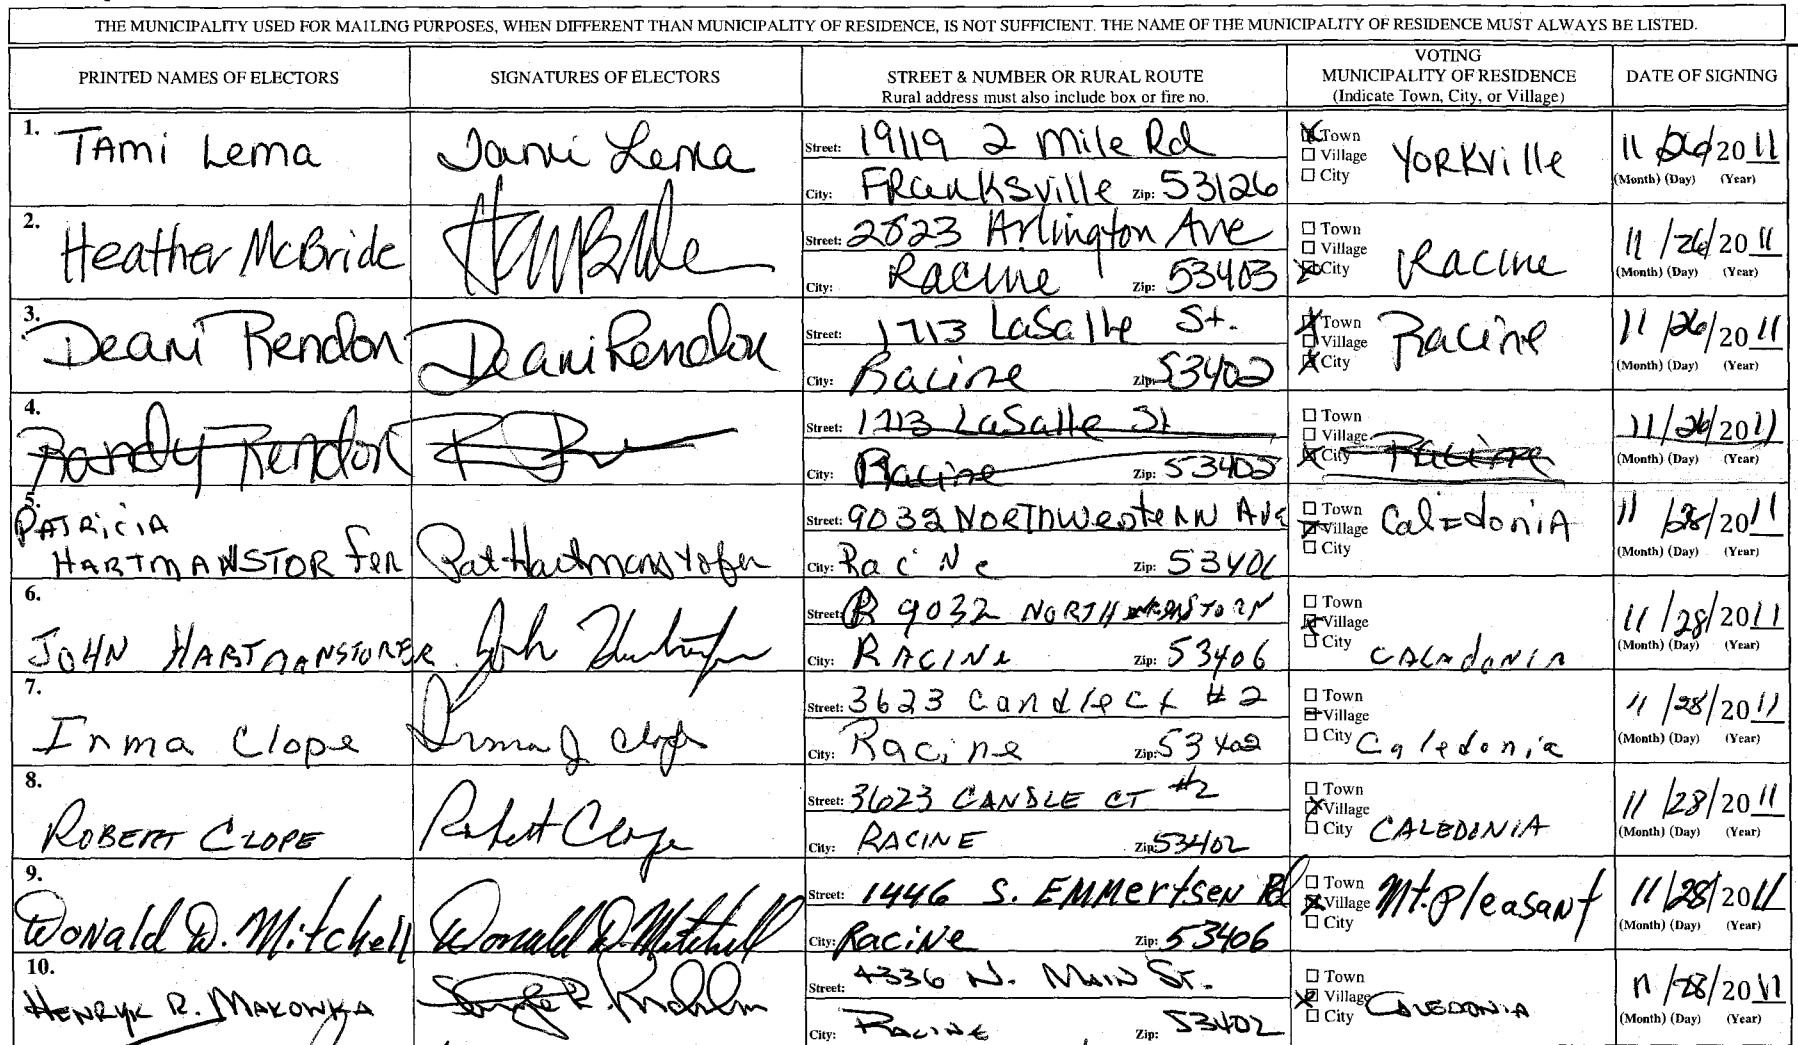 THE MUNICIPALITY USED FOR MAILING PURPOSES, WHEN DIFFERENT THAN MUNICIPALITY OF RESIDENCE, IS NOT SUFFICIENT. THE NAME OF THE MUNICIPALITY OF RESIDENCE MUST ALWAYS BE LISTED.
PRINTED NAMES OF ELECTORS
SIGNATURES OF ELECTORS
STREET & NUMBER OR RURAL ROUTE
Rural address must also include box or fire no.
VOTING
MUNICIPALITY OF RESIDENCE
(Indicate Town, City, or Village)
DATE OF SIGNING
1. TAmi Lema
Tami Lema
Street: 19119 2 Mile Rd
City: FRanksville Zip: 53126
Town
Village
City
YORKVille
11/26/2011
(Month) (Day) (Year)
2. Heather McBride
Street: 2823 Arlington Ave
City: Racine Zip: 53403
Town
Village
City
Racine
11/26/2011
(Month) (Day) (Year)
3. Deani Rendon
Deani Rendon
Street: 1713 LaSalle St.
City: Racine Zip: 53402
Town
Village
City
Racine
11/26/2011
(Month) (Day) (Year)
4. Randy Rendon
Street: 1713 LaSalle St
City: Racine Zip: 53402
Town
Village
City
Racine
11/26/2011
(Month) (Day) (Year)
5. PATRiCiA
HARTMANSTORfeR
Pat Hartmanstorfer
Street: 9032 NORTHWesteRN Ave
City: RaciNe Zip: 53406
Town
Village
City
CalEdoniA
11/28/2011
(Month) (Day) (Year)
6. JOHN HARTMANSTORER
John
Street: 9032 NORTHWESTORN
City: RACINe Zip: 53406
Town
Village
City
CALAdoNIA
11/28/2011
(Month) (Day) (Year)
7. Irma Clope
Irma J Clope
Street: 3623 Candle Ct #2
City: Racine Zip: 53402
Town
Village
City
Caledonia
11/28/2011
(Month) (Day) (Year)
8. ROBERT CLOPE
Robert Clope
Street: 3623 CANDLE CT #2
City: RACINE Zip: 53402
Town
Village
City
CALEDONIA
11/28/2011
(Month) (Day) (Year)
9. Donald D. Mitchell
Donald D. Mitchell
Street: 1446 S. EMMertsen Rd
City: RaciNe Zip: 53406
Town
Village
City
Mt. Pleasant
11/28/2011
(Month) (Day) (Year)
10. HENRYK R. MAKOWKA
Street: 4336 N. MAIN ST.
City: RACINE Zip: 53402
Town
Village
City
CALEDONIA
11/28/2011
(Month) (Day) (Year)